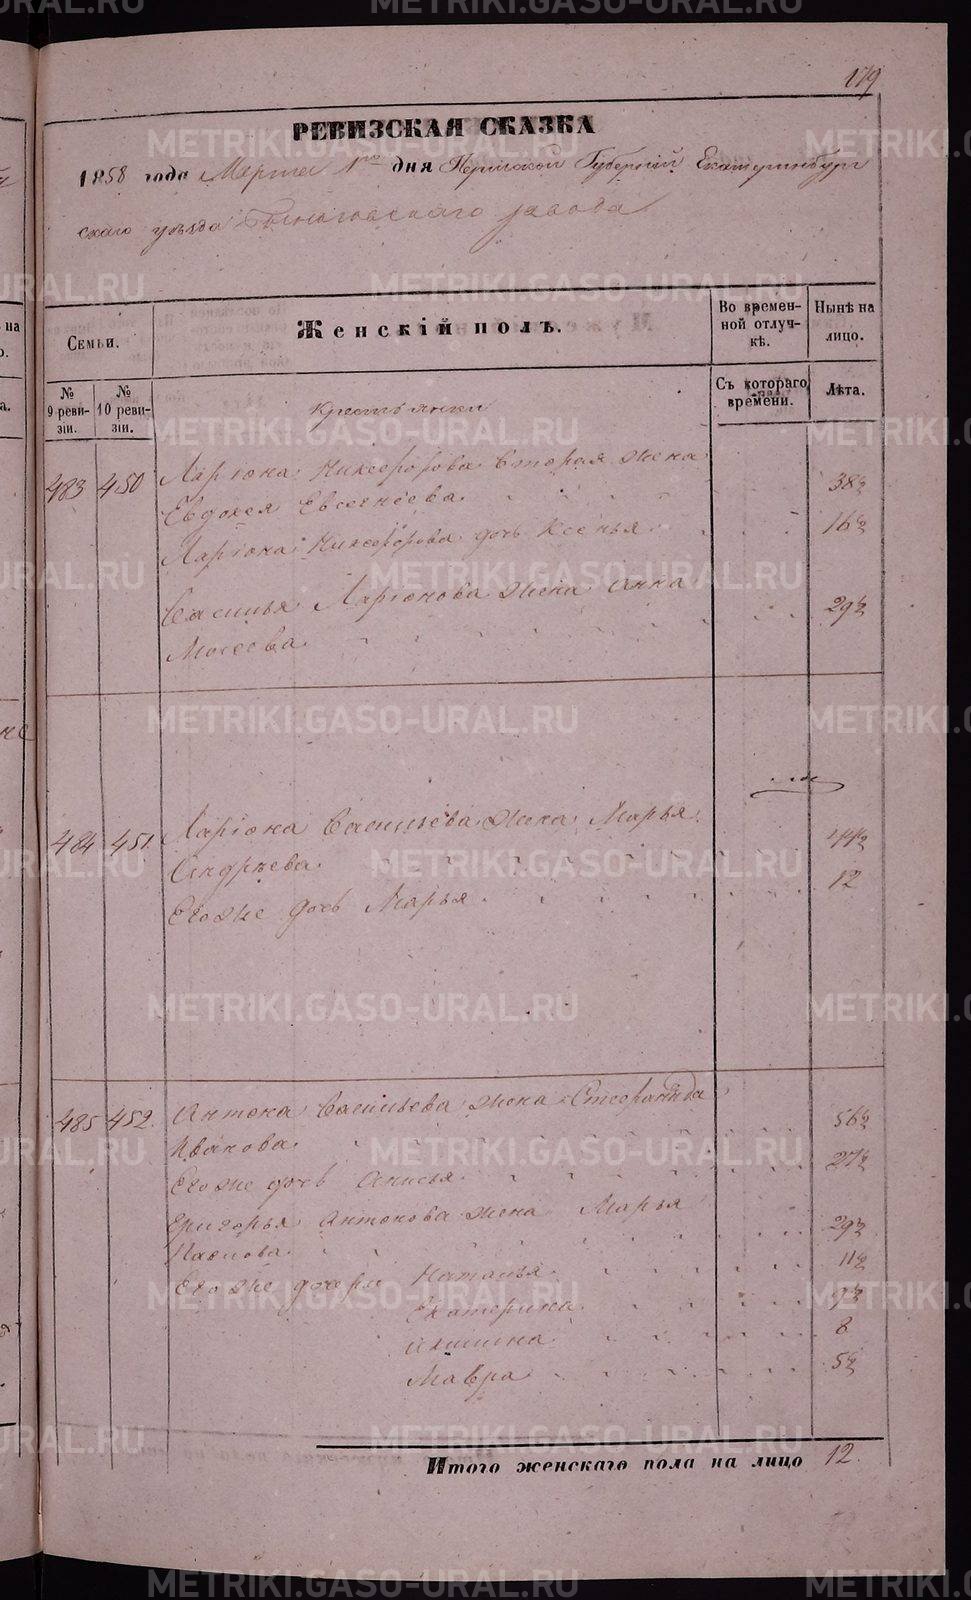 179
РЕВИЗСКАЯ СКАЗКА
1858 года Марта 1го дня Пермской Губерніи Екатеринбург
скаго уѣзда завода
Семьи.
Женскій полъ.
Во времен-
ной отлуч-
кѣ.
Нынѣ на
лицо.
№
9 реви-
зіи.
№
10 реви-
зіи.
Съ котораго
времени.
Лѣта.
Крестьянки
483 450 Ларіона Никифорова вторая жена
Евдокея Евсегнѣева 38½
Ларіона Никифорова дочь Ксенья 16½
Василья Ларіонова жена Анна
Мосеева 29½
484 451. Ларіона Васильева жена Марья
Андрѣева. 44½
Его же дочь Марья 12
485 452. Антона Васильева жена Стефанида
Иванова. 56½
Его же дочь Анисья. 27½
Григорья Антонова жена Марья
Павлова. 29½
Его же дочери Наталья 11½
Екатерина. 9½
8
Мавра 5½
Итого женскаго пола на лицо 12.
METRIKI.GASO-URAL.RU